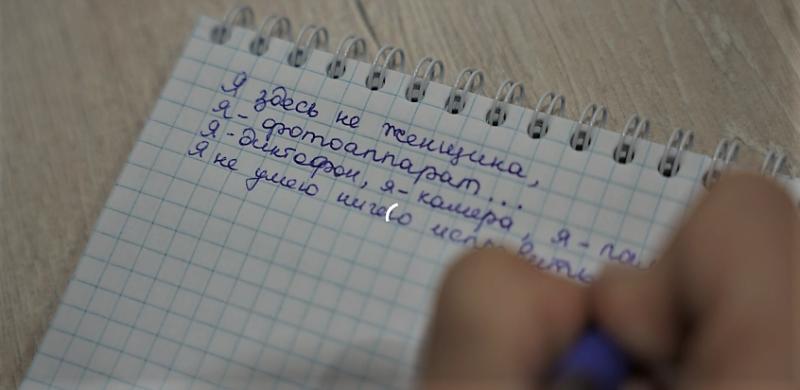 Я здесь не женщина,
я - фотоаппарат...
Я - диктофон, я - камера, я -
Я не умею